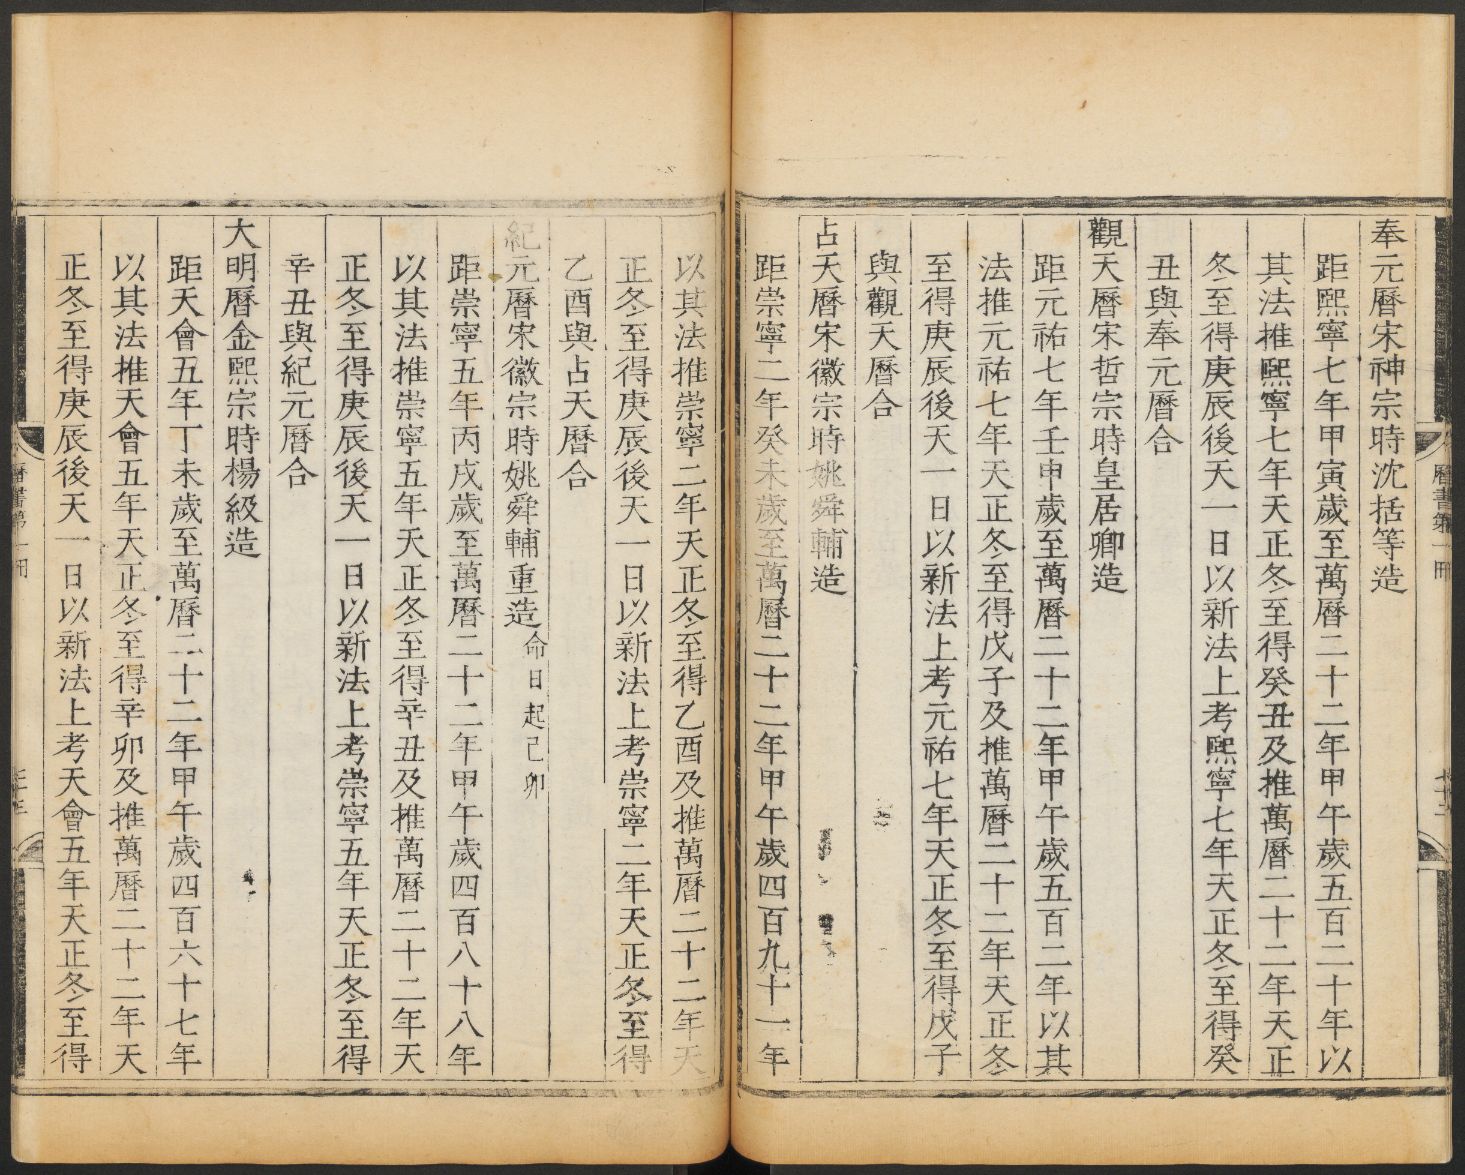 奉元曆宋神宗時沈括等造
距熙寧七年甲寅歲至萬曆二十二年甲午歲五百二十年以
其法推熙寧七年天正冬至得癸丑及推萬曆二十二年天正
冬至得庚辰後天一日以新法上考熙寧七年天正冬至得癸
丑與奉元曆合
觀天曆宋哲宗時皇居卿造
距元祐七年壬申歲至萬曆二十二年甲午歲五百二年以其
法推元祐七年天正冬至得戊子及推萬曆二十二年天正冬
至得庚辰後天一日以新法上考元祐七年天正冬至得戊子
與觀天曆合
占天曆宋徽宗時姚舜輔造
距崇寧二年癸未歲至萬曆二十二年甲午歲四百九十一年
以其法推崇寧二年天正冬至得乙酉及推萬曆二十二年天
正冬至得庚辰後天一日以新法上考崇寧二年天正冬至得
乙酉與占天曆合
紀元曆宋徽宗時姚舜輔重造命日起己卯
距崇寧五年丙戌歲至萬曆二十二年甲午歲四百八十八年
以其法推崇寧五年天正冬至得辛丑及推萬曆二十二年天
正冬至得庚辰後天一日以新法上考崇寧五年天正冬至得
辛丑與紀元曆合
大明曆金熙宗時楊級造
距天會五年丁未歲至萬曆二十二年甲午歲四百六十七年
以其法推天會五年天正冬至得辛卯及推萬曆二十二年天
正冬至得庚辰後天一日以新法上考天會五年天正冬至得
曆書第一冊